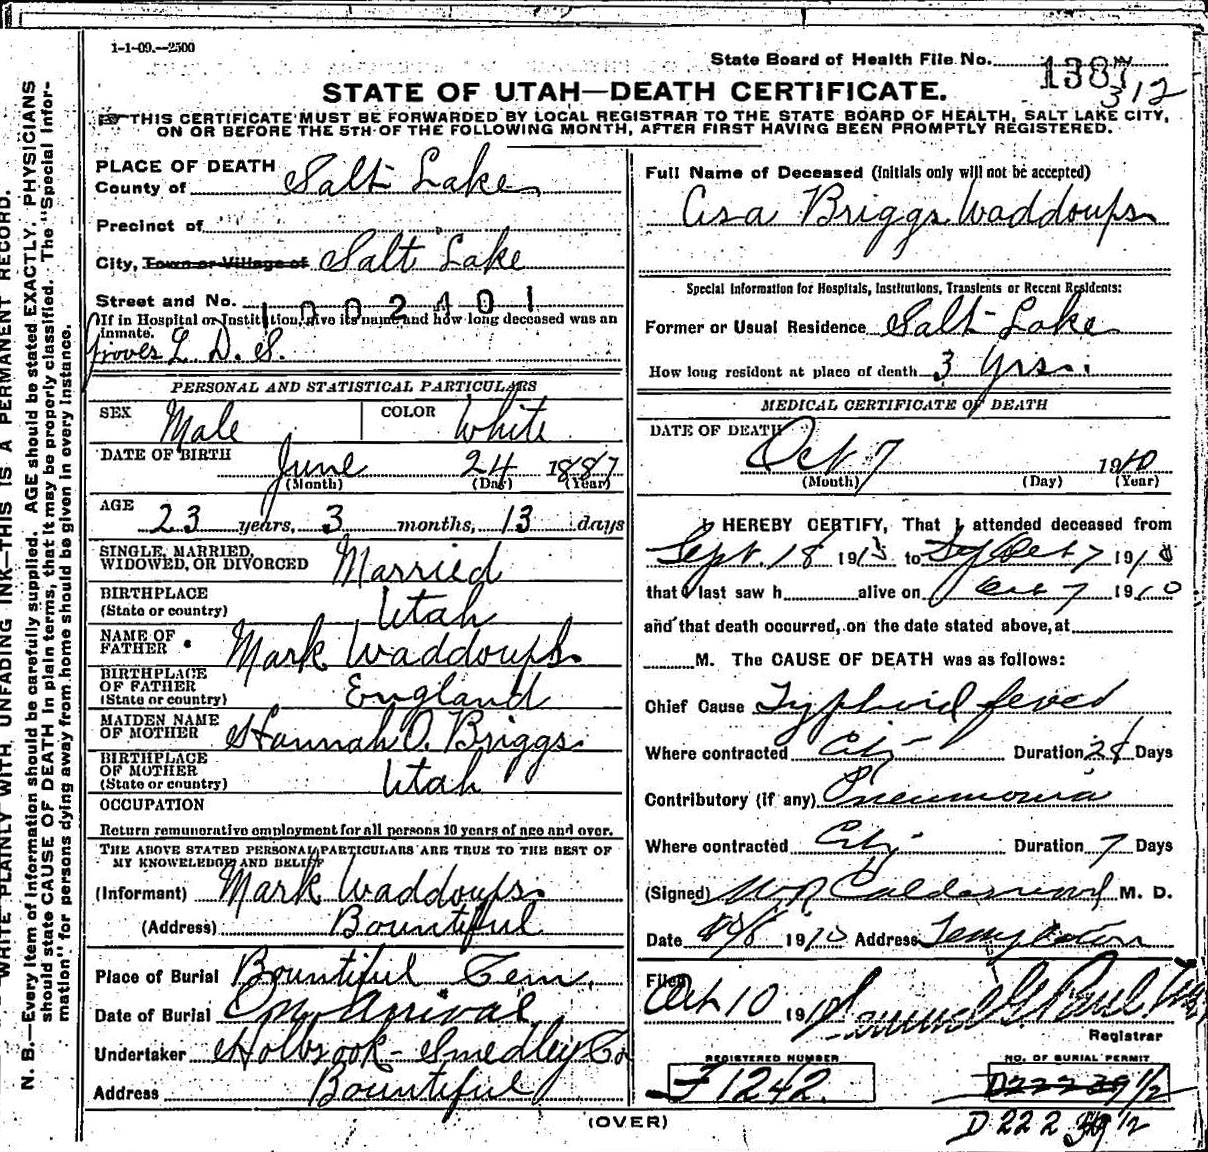 1-1-09.—2500
State Board of Health File No. 1387
312
STATE OF UTAH—DEATH CERTIFICATE.
THIS CERTIFICATE MUST BE FORWARDED BY LOCAL REGISTRAR TO THE STATE BOARD OF HEALTH, SALT LAKE CITY,
ON OR BEFORE THE 5TH OF THE FOLLOWING MONTH, AFTER FIRST HAVING BEEN PROMPTLY REGISTERED.
WRITE PLAINLY WITH UNFADING INK—THIS IS A PERMANENT RECORD.
N. B.—Every item of information should be carefully supplied. AGE should be stated EXACTLY. PHYSICIANS
should state CAUSE OF DEATH in plain terms, that it may be properly classified. The "Special Infor-
mation" for persons dying away from home should be given in every instance.
PLACE OF DEATH
County of Salt Lake
Precinct of
City, Town or Village of Salt Lake
Street and No. 1002401
If in Hospital or Institution, give its name and how long deceased was an
inmate.
Groves L. D. S.
PERSONAL AND STATISTICAL PARTICULARS
SEX Male COLOR White
DATE OF BIRTH June 24 1887
(Month) (Day) (Year)
AGE 23 years, 3 months, 13 days
SINGLE, MARRIED,
WIDOWED, OR DIVORCED Married
BIRTHPLACE
(State or country) Utah
NAME OF
FATHER Mark Waddoups
BIRTHPLACE
OF FATHER
(State or country) England
MAIDEN NAME
OF MOTHER Hannah O. Briggs
BIRTHPLACE
OF MOTHER
(State or country) Utah
OCCUPATION
Return remunerative employment for all persons 10 years of age and over.
THE ABOVE STATED PERSONAL PARTICULARS ARE TRUE TO THE BEST OF
MY KNOWELEDGE AND BELIEF
(Informant) Mark Waddoups
(Address) Bountiful
Place of Burial Bountiful Cem.
Date of Burial On Arrival
Undertaker Holbrook-Smedley Co
Address Bountiful
Full Name of Deceased (Initials only will not be accepted)
Asa Briggs Waddoups
Special Information for Hospitals, Institutions, Transients or Recent Residents:
Former or Usual Residence Salt Lake
How long resident at place of death 3 Yrs.
MEDICAL CERTIFICATE OF DEATH
DATE OF DEATH Oct 7 1910
(Month) (Day) (Year)
I HEREBY CERTIFY, That I attended deceased from
Sept. 18 191 to Oct 7 1910
that I last saw h alive on Oct 7 1910
and that death occurred, on the date stated above, at
M. The CAUSE OF DEATH was as follows:
Chief Cause Typhoid fever
Where contracted City Duration 28 Days
Contributory (if any) Pneumonia
Where contracted City Duration 7 Days
(Signed) M. D.
Date 10/8 1910 Address
Filed
Oct 10 1910
Registrar
REGISTERED NUMBER
F1242
NO. OF BURIAL PERMIT
D22239 1/2
D22239 1/2
(OVER)